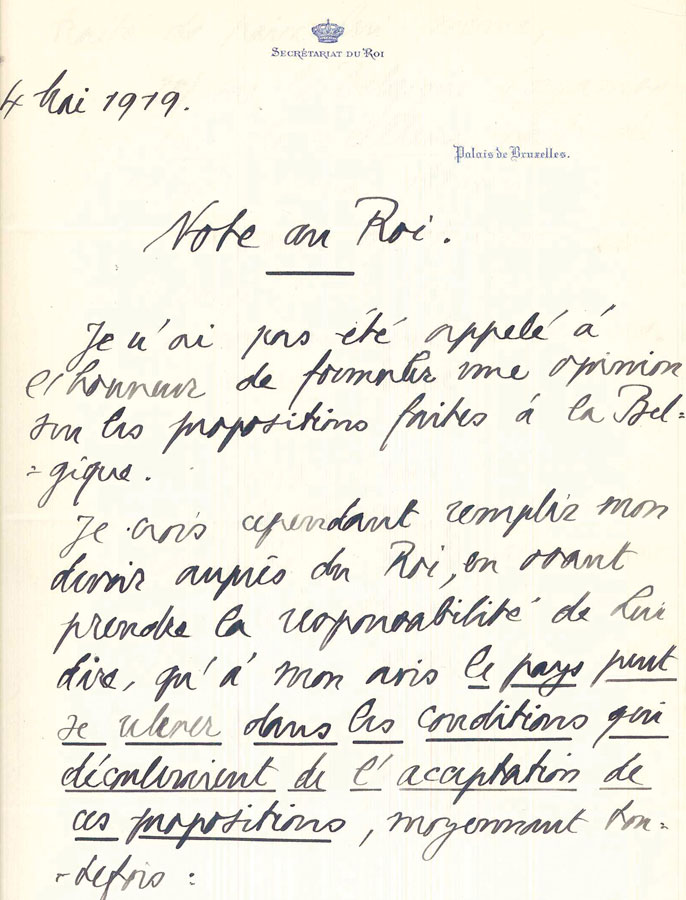 SECRÉTARIAT DU ROI
4 Mai 1919.
Palais de Bruxelles.
Note au Roi.
Je n'ai pas été appelé à
l'honneur de formuler une opinion
sur les propositions faites à la Bel=
=gique.
Je crois cependant remplir mon
devoir auprès du Roi, en osant
prendre la responsabilité de Lui
dire, qu'à mon avis le pays peut
se relever dans les conditions qui
découleraient de l'acceptation de
ces propositions, moyennant tou=
=tefois :